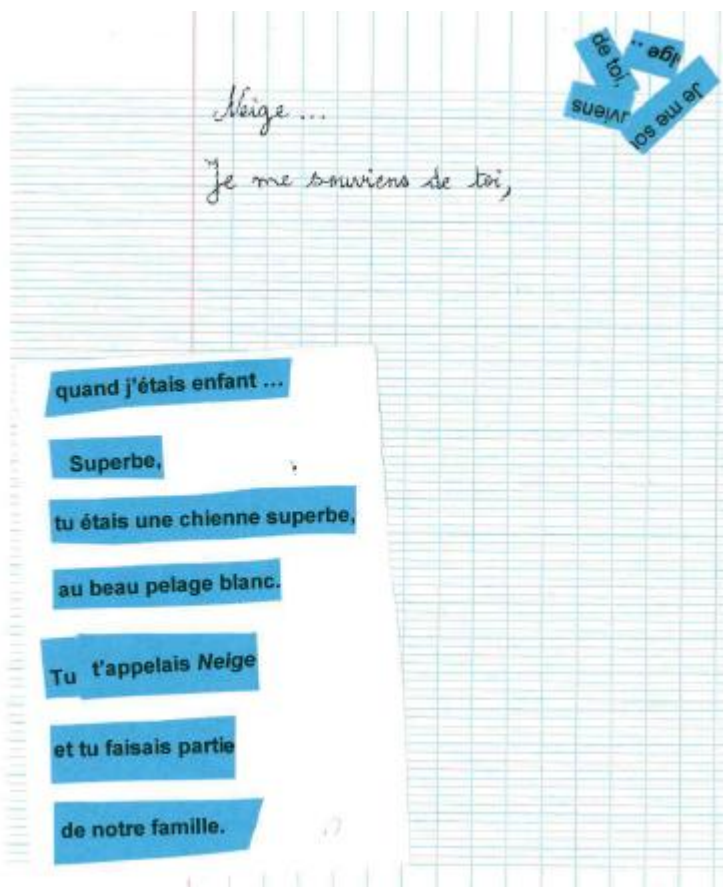 Neige ...
Je me souviens de toi,
de toi,
ige ..
Je me soi
uviens
quand j'étais enfant ...
Superbe,
tu étais une chienne superbe,
au beau pelage blanc.
Tu t'appelais Neige
et tu faisais partie
de notre famille.